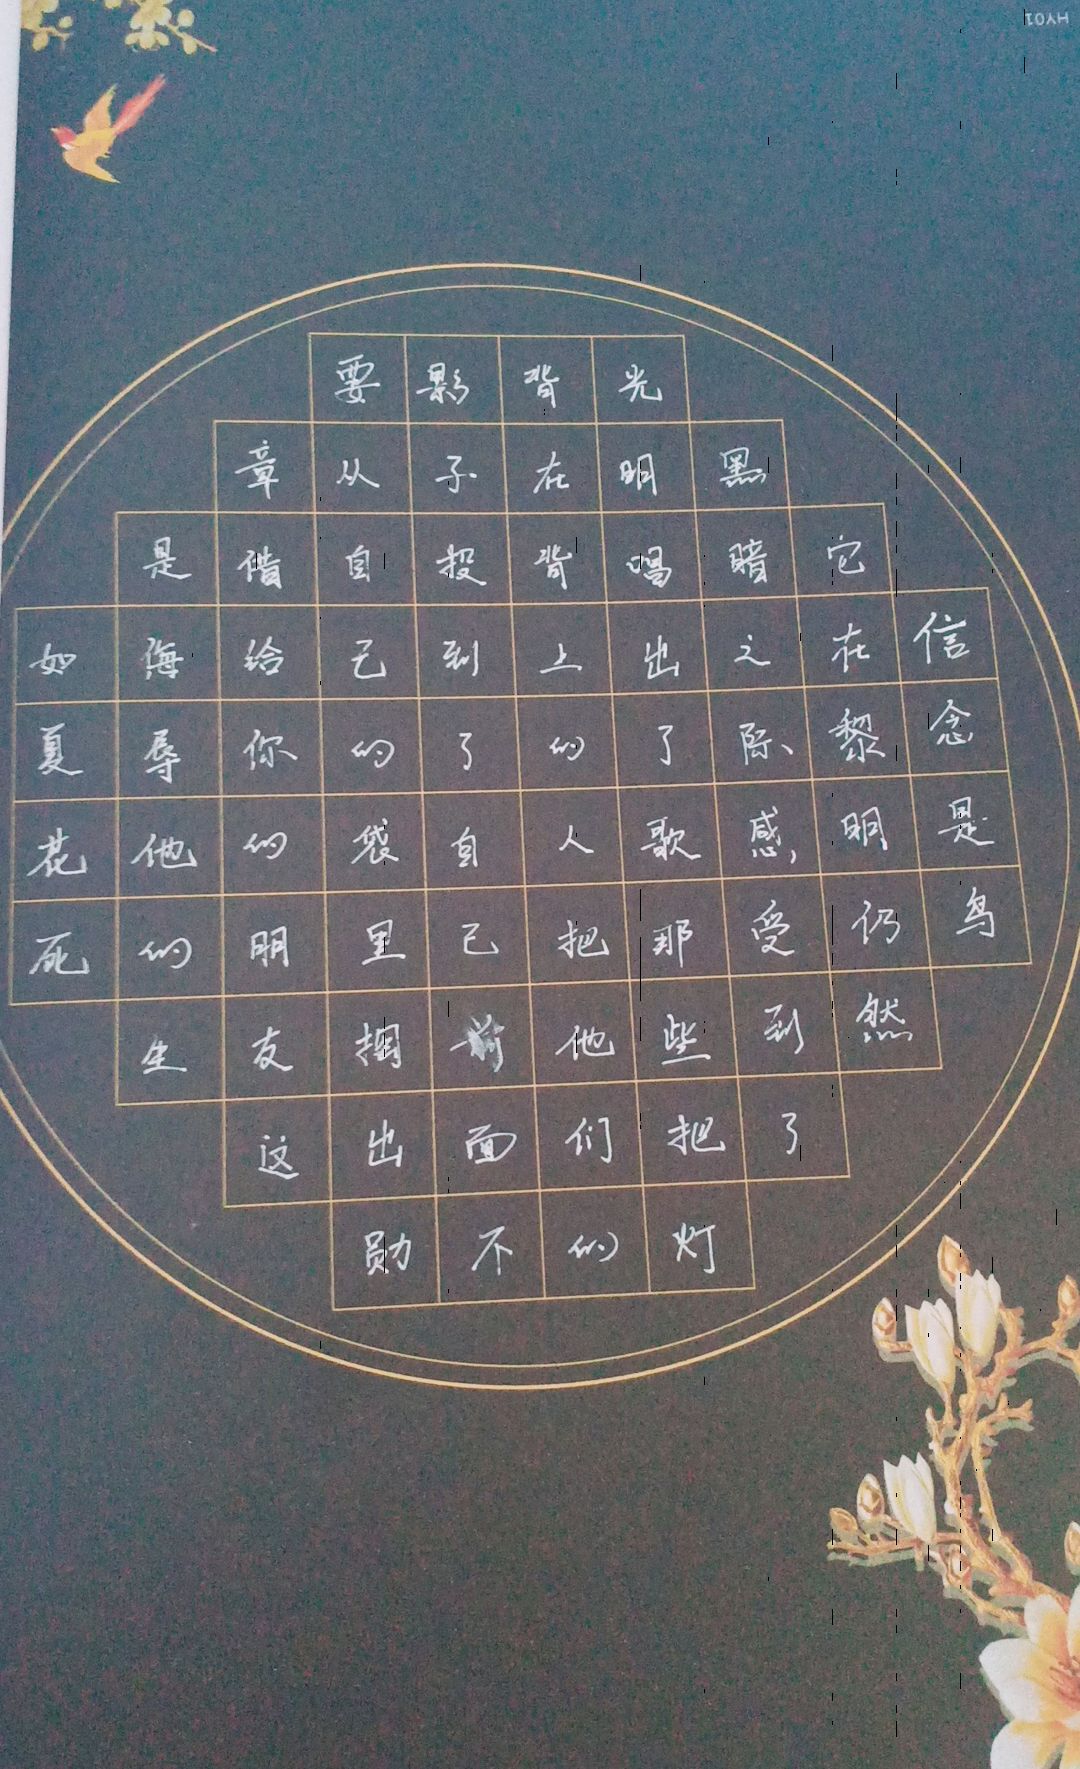 信念是鸟
它在黎明仍然
黑暗之际、感,受到了
光明唱出了歌那些把灯
背在背上的人把他们的
影子投到了自己前面不
要从自己的袋里掏出勋
章借给你的朋友这
是侮辱他的生
如夏花死
HY01